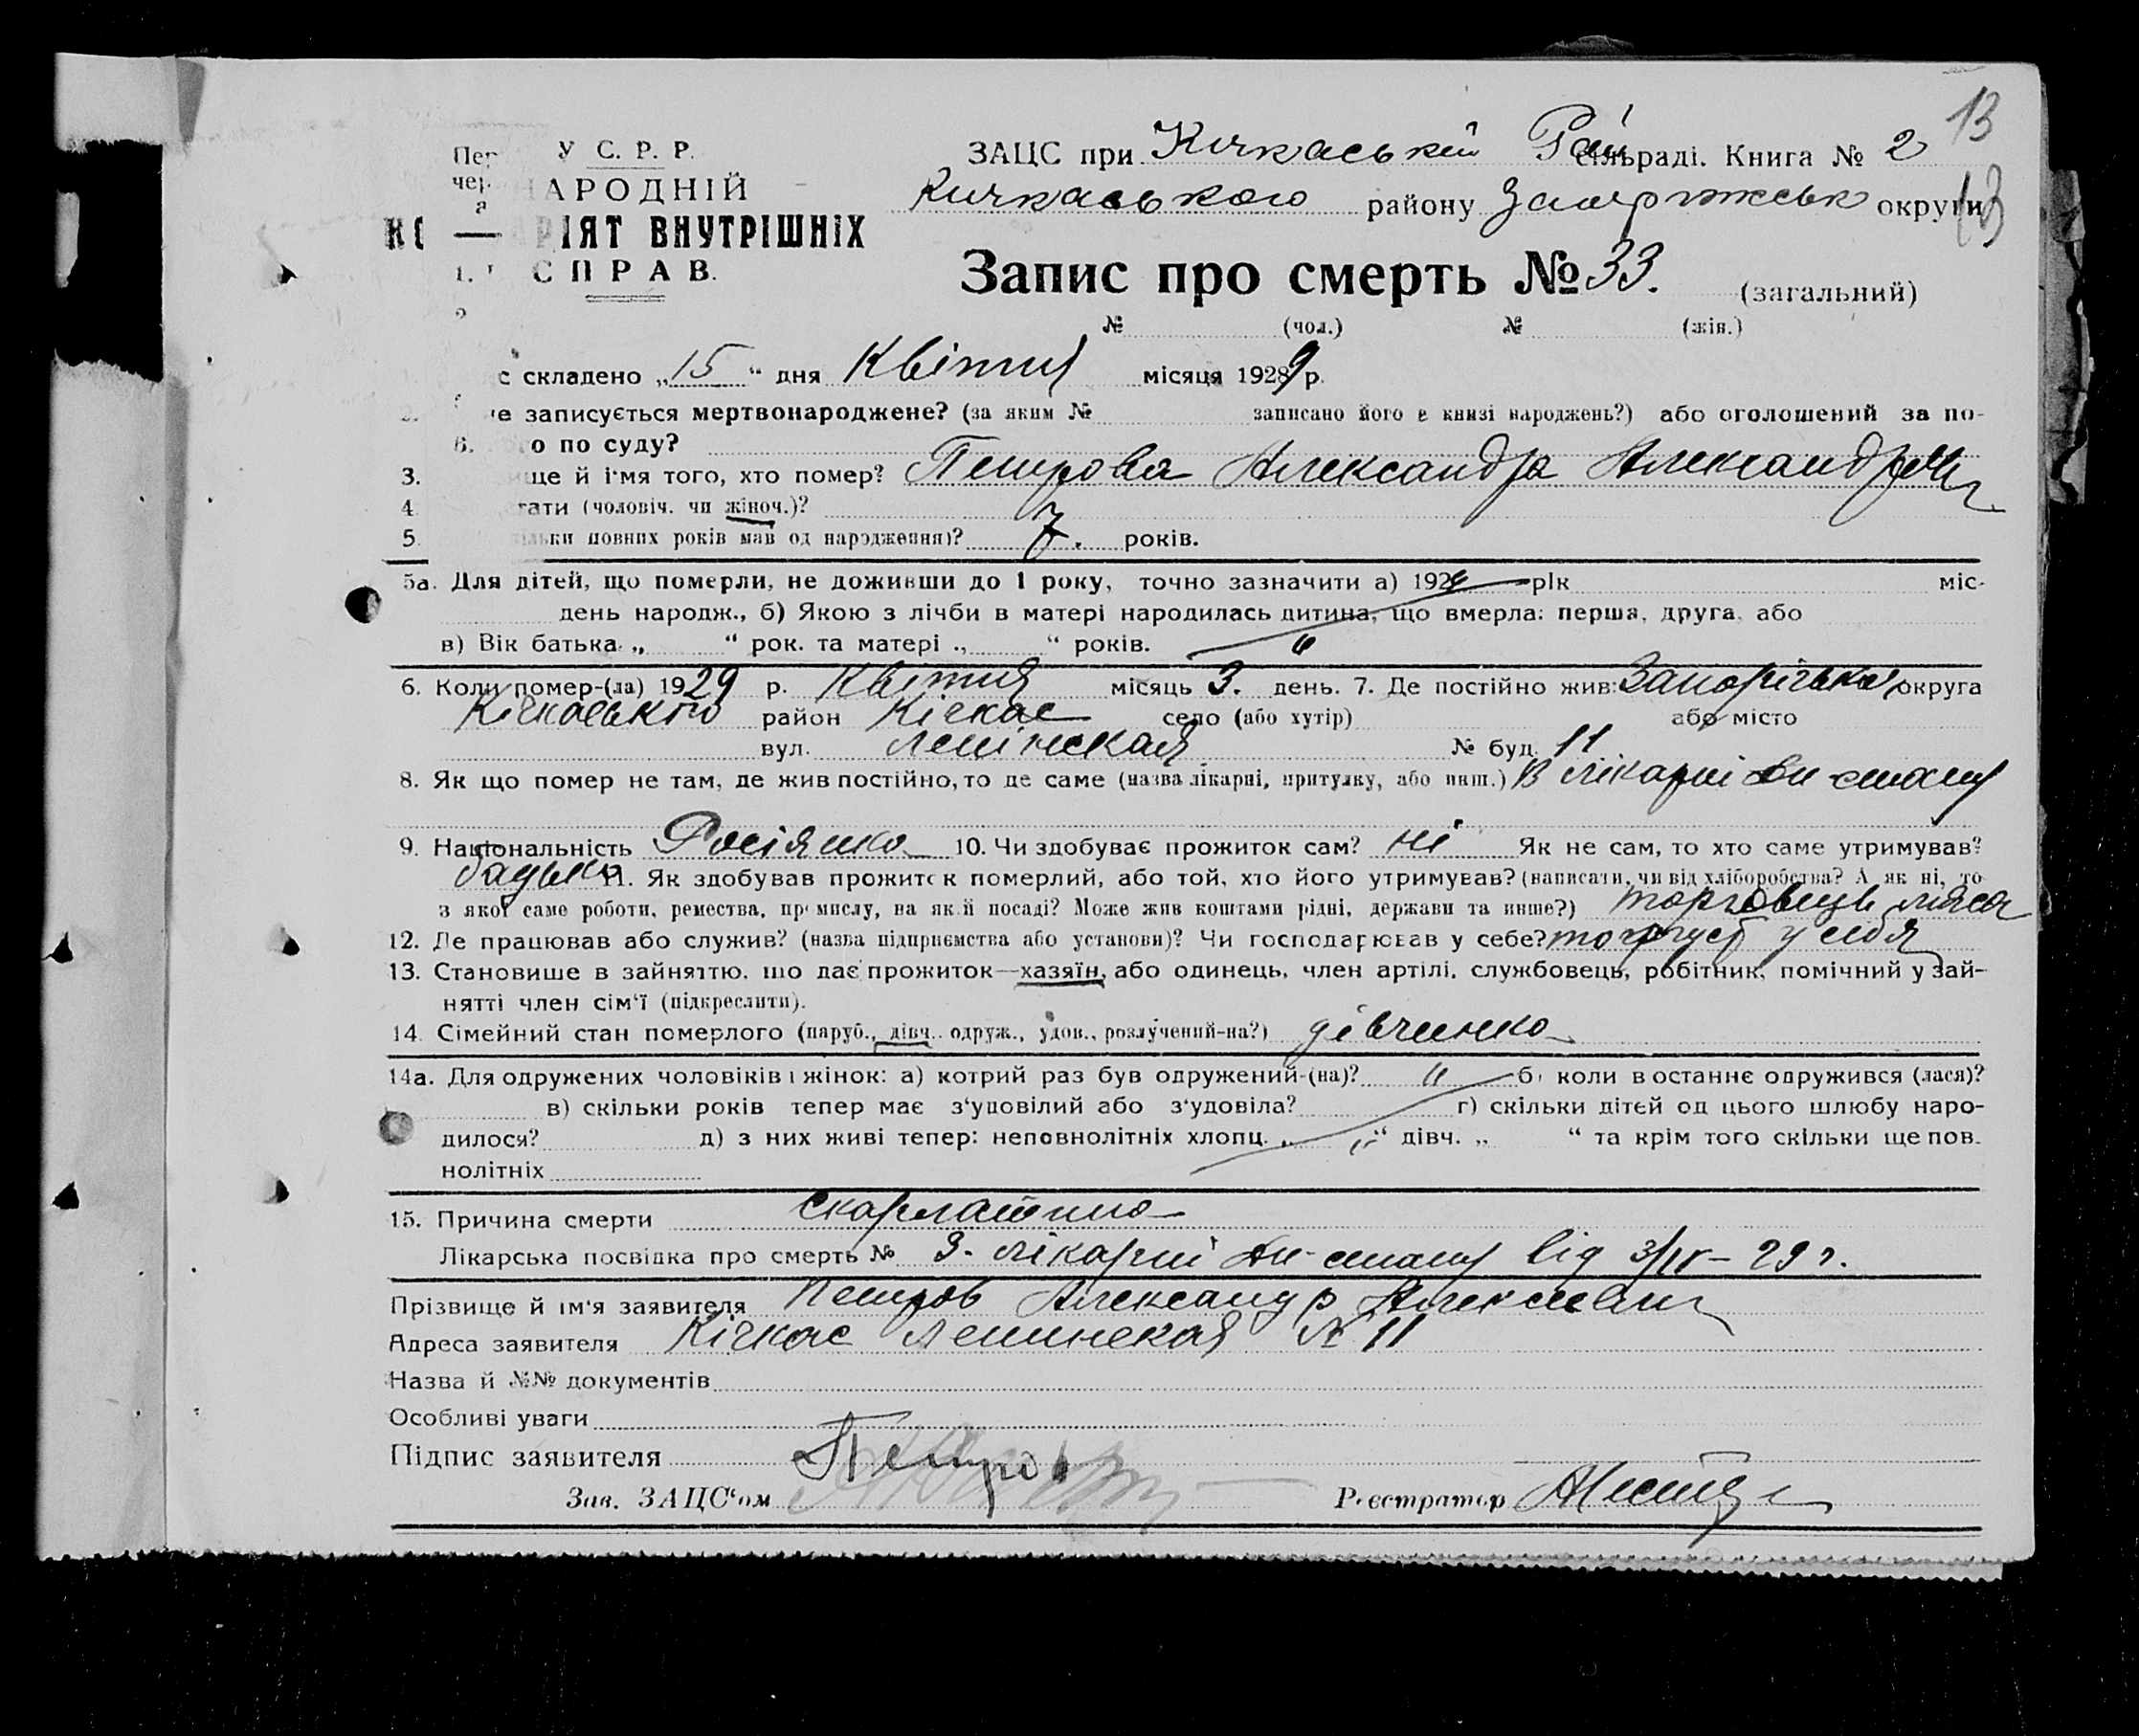 13
У С. Р. Р.
ЗАЦС при Кічкаський Рай сільраді. Книга № 2
Пер
чер
АРОДНІЙ
Кичкаського району округи 13
а
ІЯТ ВНУТРІШНІХ
1. СПРАВ.
Запис про смерть № 33. (загальний)
2
№ (чол.) № (жін.)
с складено „15“ дня Квітня місяця 1929 р.
е записується мертвонароджене? (за яким № записано його в книзі народжень?) або оголошений за по-
6. о по суду?
3. ще й ім'я того, хто помер? Петрова Александра Александровн
4 тати (чоловіч. чи жіноч.)?
5 льки повних років мав од народження)? 7. років.
5а. Для дітей, що померли, не доживши до 1 року, точно зазначити а) 192 рік міс-
день народж., б) Якою з лічби в матері народилась дитина, що вмерла: перша, друга, або
в) Вік батька „ “ рок. та матері „ “ років. "
6. Коли помер-(ла) 1929 р. Квітня місяць 3. день. 7. Де постійно жив: Запорізька округа
Кічкаського район Кічкас село (або хутір) або місто
вул. Ленінская № буд. 11
8. Як що помер не там, де жив постійно, то де саме (назва лікарні, притулку, або инш.) В лікарні
9. Національність Росіянка 10. Чи здобуває прожиток сам? ні Як не сам, то хто саме утримував?
батько 11. Як здобував прожиток померлий, або той, хто його утримував? (написати, чи від хліборобства? А як ні, то
з якої саме роботи, ремества, промислу, на якій посаді? Може жив коштами рідні, держави та инше?) торговець мяса
12. Де працював або служив? (назва підприємства або установи)? Чи господарював у себе? торгує у себя
13. Становище в зайняттю, що дає прожиток—хазяїн, або одинець, член артілі, службовець, робітник, помічний у зай-
нятті член сім'ї (підкреслити).
14. Сімейний стан померлого (паруб., дівч., одруж., удов., розлучений-на?) дівчинка
14а. Для одружених чоловіків і жінок: а) котрий раз був одружений-(на)? " б) коли востаннє одружився (лася)?
в) скільки років тепер має з'уповілий або з'удовіла? г) скільки дітей од цього шлюбу наро-
дилося? д) з них живі тепер: неповнолітніх хлопц. „ “ дівч. „ “ та крім того скільки ще пов.
нолітніх
15. Причина смерти Скарлатина
Лікарська посвідка про смерть № 3. лікарні від 3/IV – 29 г.
Прізвище й ім'я заявителя Петров Александр Алексеевич
Адреса заявителя Кічкас Ленинская № 11
Назва й №№ документів
Особливі уваги
Підпис заявителя Петров
Зав. ЗАЦС'ом Реєстратор